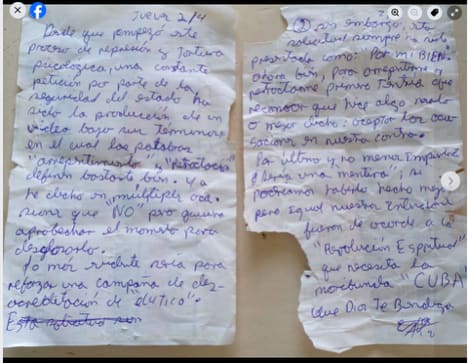 Jueves 2/4
Desde que empezó este
proceso de represión y tortura
psicológica, una constante
petición por parte de la
seguridad del estado ha
sido la producción de un
video bajo sus términos
en el cual las palabras
"arrepentimiento" y "retratación"
definen bastante bien. Ya
he dicho en múltiple oca
siones que "NO" pero quiero
aprobechar el momento para
desglosarlo.
Lo más evidente seria para
reforzar una campaña de des-
acreditación de "el4tico".
Esta solicitud sin
② sin embargo, esta
solicitud siempre a sido
presentada como: "Por mi BIEN".
Ahora bien, para arrepentirme y
retractarme primero tendria que
reconocer que hice algo malo
o mejor dicho: aceptar las acu
saciones en nuestra contra.
Por último y no menos importante
seria una mentira; si
podríamos haberlo hecho mejor
pero igual nuestras intenciones
fueron de acorde a la
"Revolución Espiritual"
que necesita la
moribunda "CUBA
Que Dios Te Bendiga